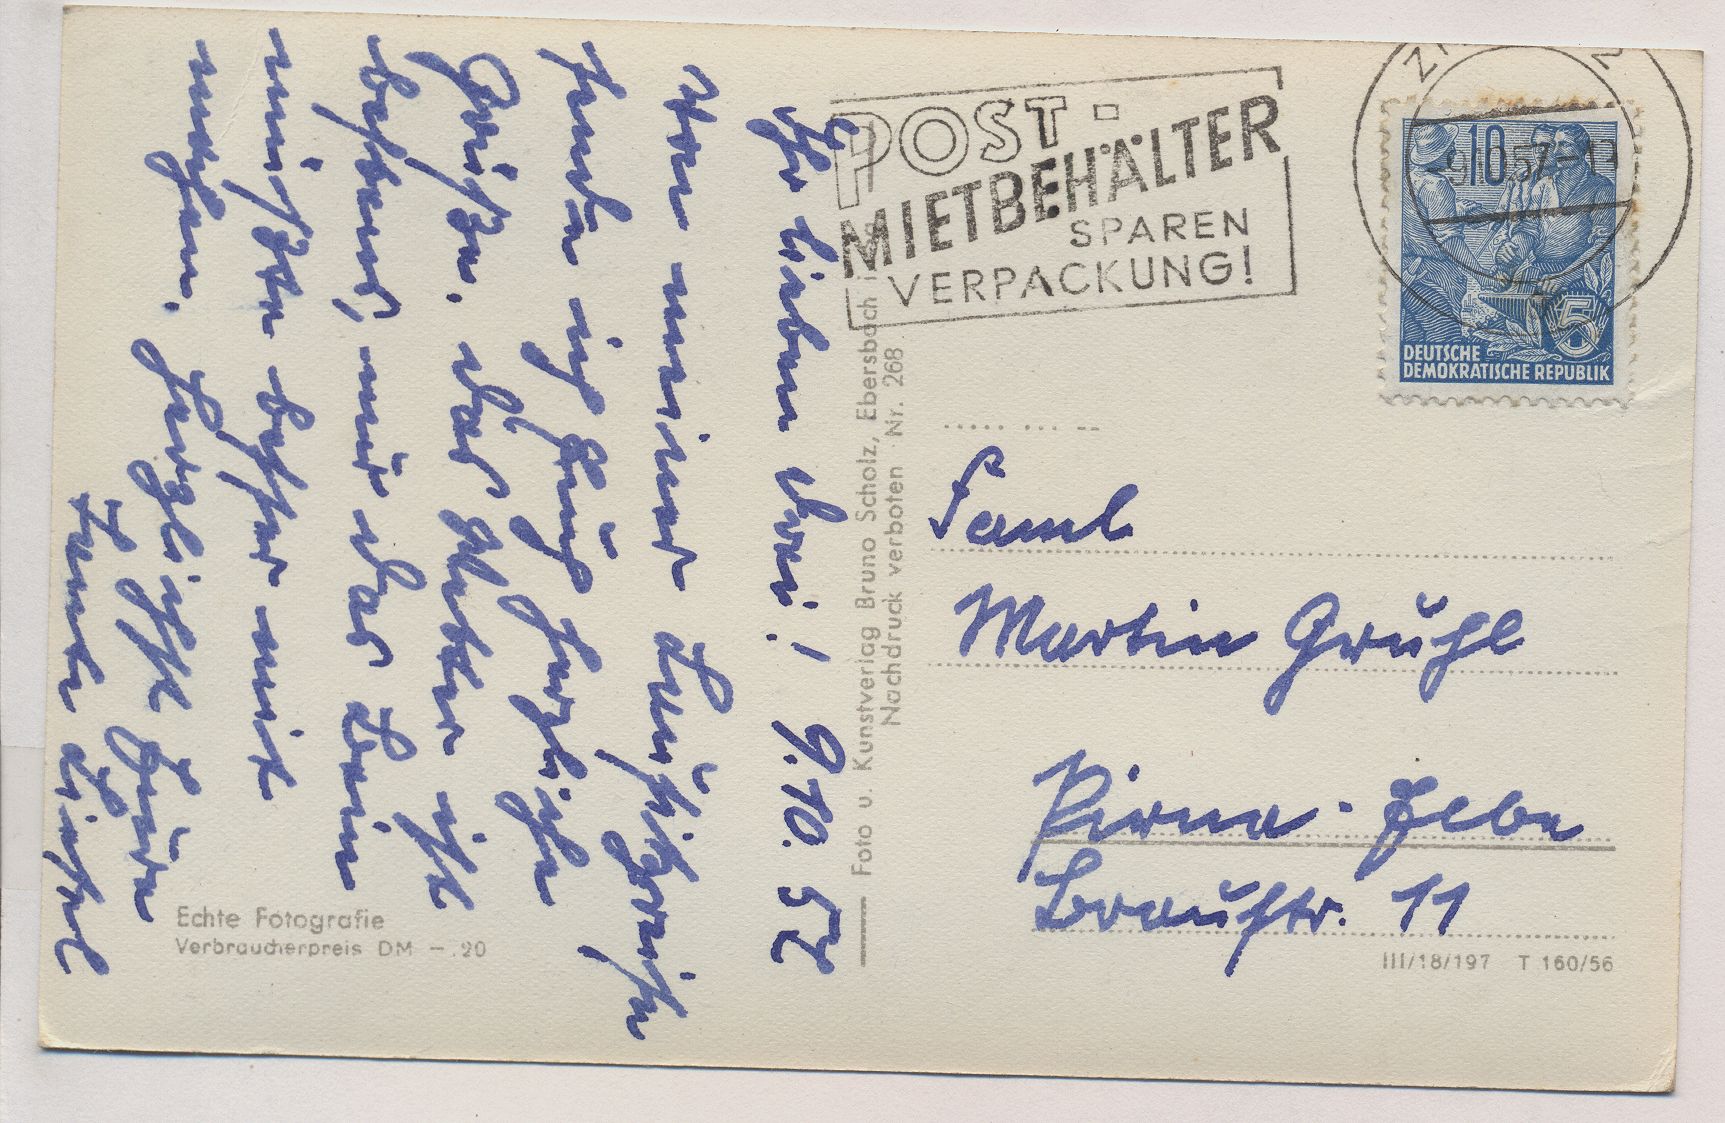 Ihr lieben drei! 9.10.57
Von meiner Lausitzreise
sende ich Euch herzliche
Grüße. Das Wetter ist
bestens, nur das Bein
müßte besser mit
machen. Herzlichst Eure
Tante Liesel
POST-
MIETBEHÄLTER
SPAREN
VERPACKUNG!
10
5
DEUTSCHE
DEMOKRATISCHE REPUBLIK
Foto u. Kunstverlag Bruno Scholz, Ebersbach i. Sa.
Nachdruck verboten Nr. 268
Faml
Martin Gruhl
Pirna-Jelbe
Braustr. 11
Echte Fotografie
Verbraucherpreis DM -.20
III/18/197 T 160/56